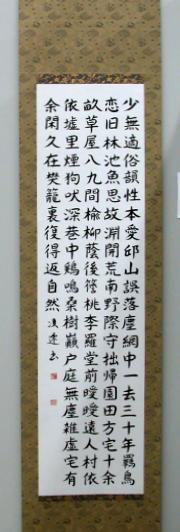 少無適俗韻性本愛邱山誤落塵網中一去三十年羇鳥
恋旧林池魚思故淵開荒南野際守拙帰園田方宅十余
畝草屋八九間楡柳蔭後簷桃李羅堂前曖曖遠人村依
依墟里煙狗吠深巷中鶏鳴桑樹巓戸庭無塵雑虚宅有
余閑久在樊籠裏復得返自然